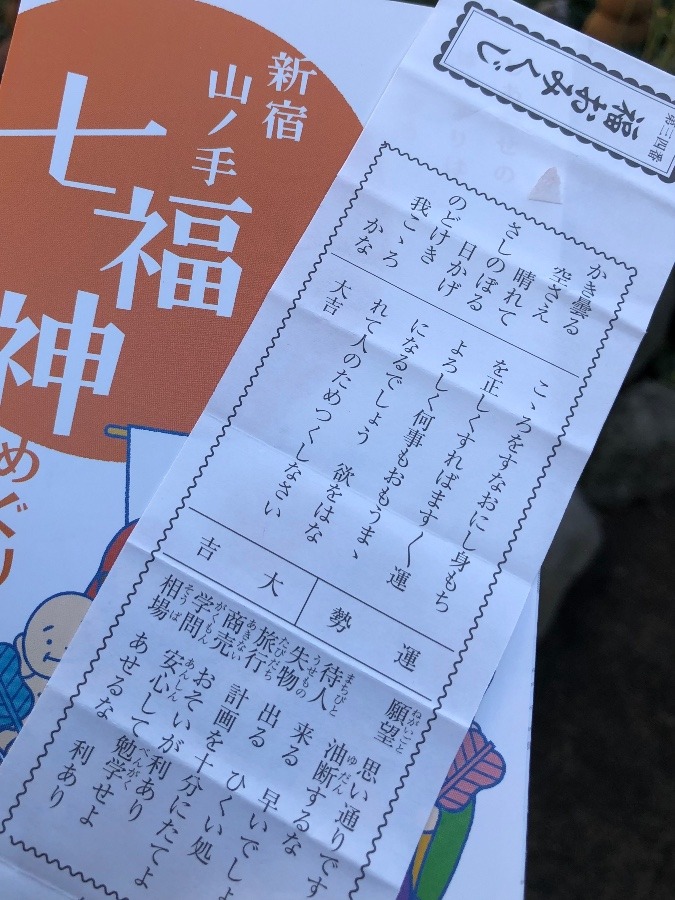 新宿
山ノ手
七福神
めぐり
福おみくじ
第三四番
かき曇る
空さえ
晴れて
さしのぼる
日かげ
のどけき
我こゝろ
かな
大吉
こゝろをすなおにし身もち
を正しくすればます〱運
よろしく何事もおもうまゝ
になるでしょう 欲をはな
れて人のためつくしなさい
運勢
大吉
願望 思い通りです
ねがいごと
油断するな
ゆだん
待人 来る
まちびと
失物 出る 早いでしょ
うせもの
旅行 計画を十分にたてよ
たびだち
商売
あきない
学問 安心して勉学せよ
がくもん あんしん べんがく
相場 あせるな 利あり
そうば
ひくい処
おそいが利あり